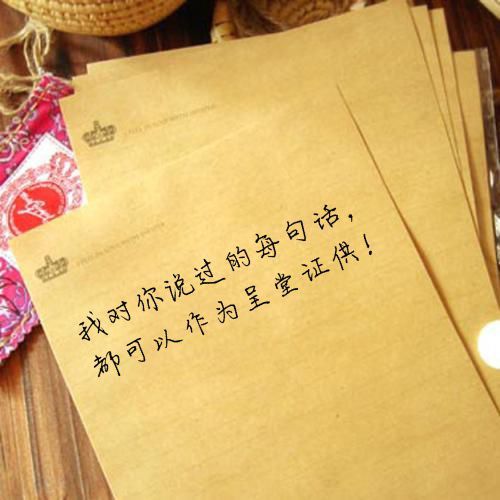 我对你说过的每句话，
都可以作为呈堂证供！